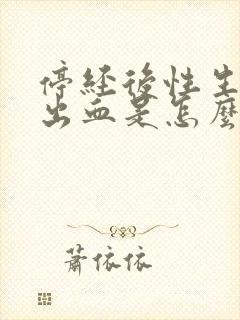 停經後性生
出血是怎麼
蕭依依